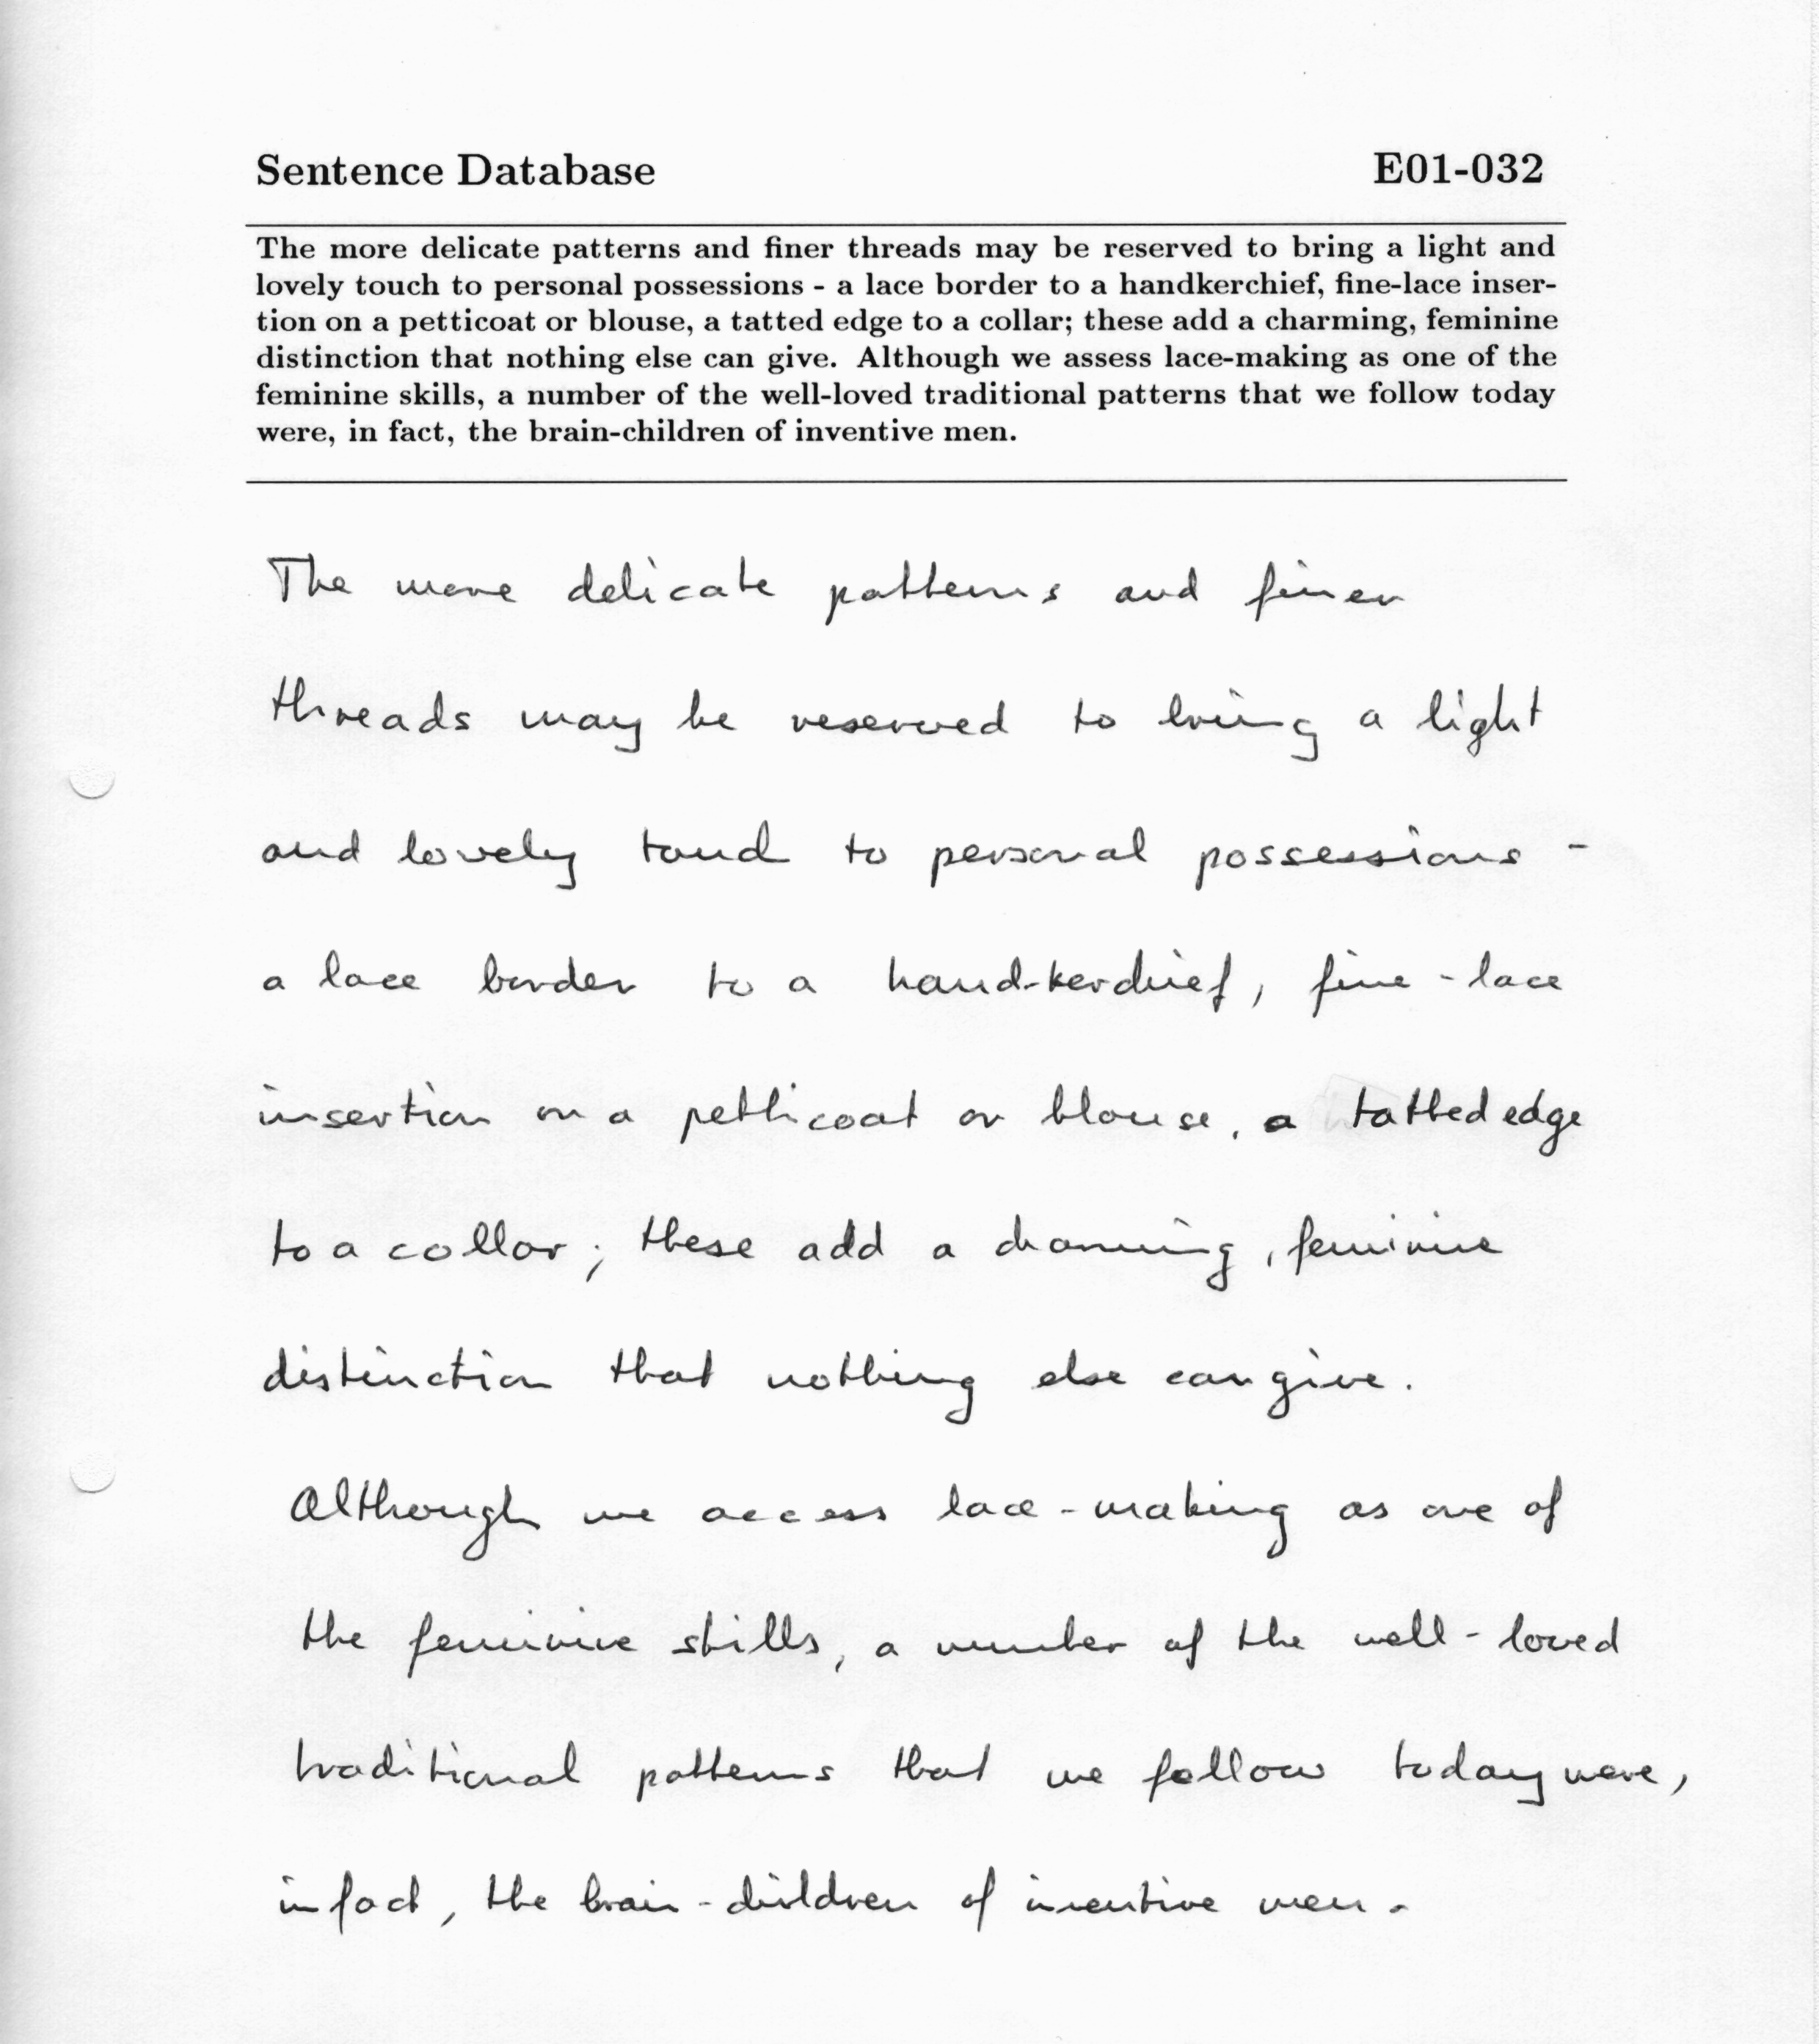 Sentence Database E01-032
The more delicate patterns and finer threads may be reserved to bring a light and
lovely touch to personal possessions - a lace border to a handkerchief, fine-lace inser-
tion on a petticoat or blouse, a tatted edge to a collar; these add a charming, feminine
distinction that nothing else can give. Although we assess lace-making as one of the
feminine skills, a number of the well-loved traditional patterns that we follow today
were, in fact, the brain-children of inventive men.
The more delicate patterns and finer
threads may be reserved to bring a light
and lovely touch to personal possessions -
a lace border to a hand-kerchief, fine-lace
insertion on a petticoat or blouse, a tatted edge
to a collar; these add a charming, feminine
distinction that nothing else can give.
Although we access lace-making as one of
the feminine skills, a number of the well-loved
traditional patterns that we follow today were,
in fact, the brain-children of inventive men.